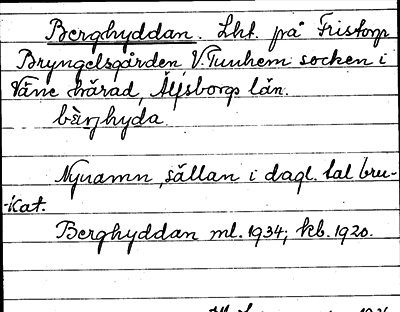 Berghyddan. Lht. på Fristorp
Bryngelsgården V. Tunhem socken i
Väne härad, Älfsborgs län.
bàrjhyda.
Nynamn, sällan i dagl. tal bru-
kat.
Berghyddan ml. 1934; kb. 1920.